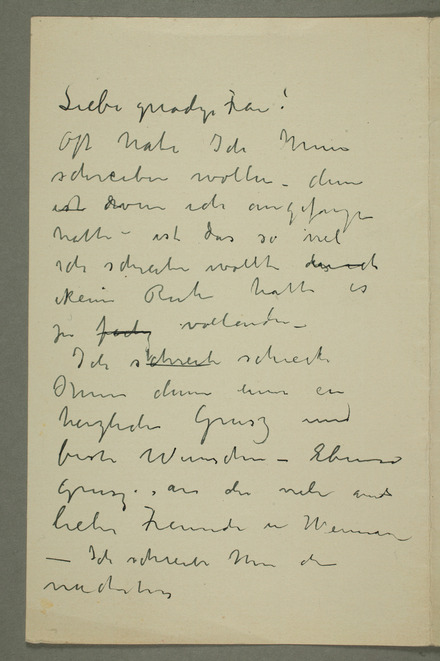 Liebe gnädge Frau!
Oft hatte Ich Ihnen
schreiben wollen – denn
ist wenn ich angefangen
hatte – ist das so viel
ich schreiben wollte
keine Ruhe hatte es
zu fertig vollenden –
Ich schreibe schreibe
Ihnen denn nur en
herzlichen Grusz und
beste Wunsche – Ebenso
Grusz. an die viele and
lieben Freunde in Weimar
– Ich schreibe Ihnen die
nachstens